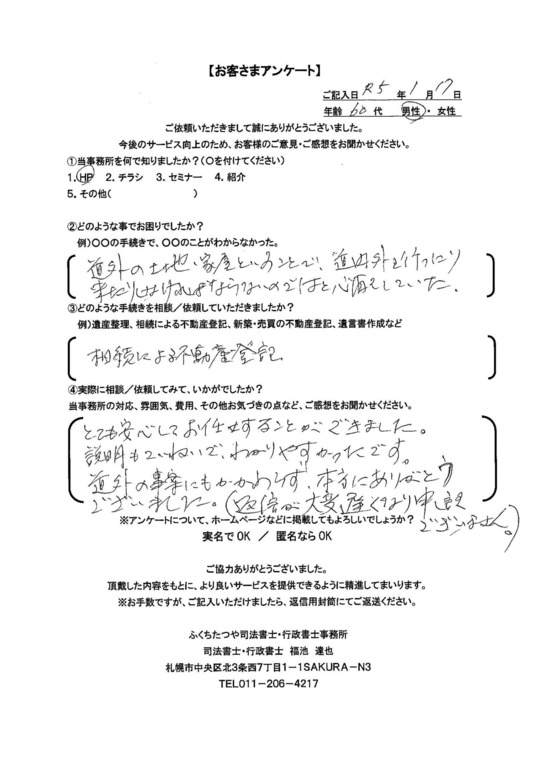 【お客さまアンケート】
ご記入日 R5 年 1 月 17 日
年齢 60 代 男性・女性
ご依頼いただきまして誠にありがとうございました。
今後のサービス向上のため、お客様のご意見・ご感想をお聞かせください。
①当事務所を何で知りましたか?(〇を付けてください)
1. HP 2. チラシ 3. セミナー 4. 紹介
5. その他( )
②どのような事でお困りでしたか?
例)〇〇の手続きで、〇〇のことがわからなかった。
道外の土地・家屋ということで、道内外を行ったり
来たりしなければならないのではと心配していた。
③どのような手続きを相談/依頼していただきましたか?
例)遺産整理、相続による不動産登記、新築・売買の不動産登記、遺言書作成など
相続による不動産登記
④実際に相談/依頼してみて、いかがでしたか?
当事務所の対応、雰囲気、費用、その他お気づきの点など、ご感想をお聞かせください。
とても安心してお任せすることができました。
説明もていねいで、わかりやすかったです。
道外の事案にもかかわらず、本当にありがとう
ございました。(返信が大変遅くなり申し訳
ございません。)
※アンケートについて、ホームページなどに掲載してもよろしいでしょうか?
実名でOK / 匿名ならOK
ご協力ありがとうございました。
頂戴した内容をもとに、より良いサービスを提供できるように精進してまいります。
※お手数ですが、ご記入いただけましたら、返信用封筒にてご返送ください。
ふくちたつや司法書士・行政書士事務所
司法書士・行政書士 福池 達也
札幌市中央区北3条西7丁目1-1SAKURA-N3
TEL011-206-4217